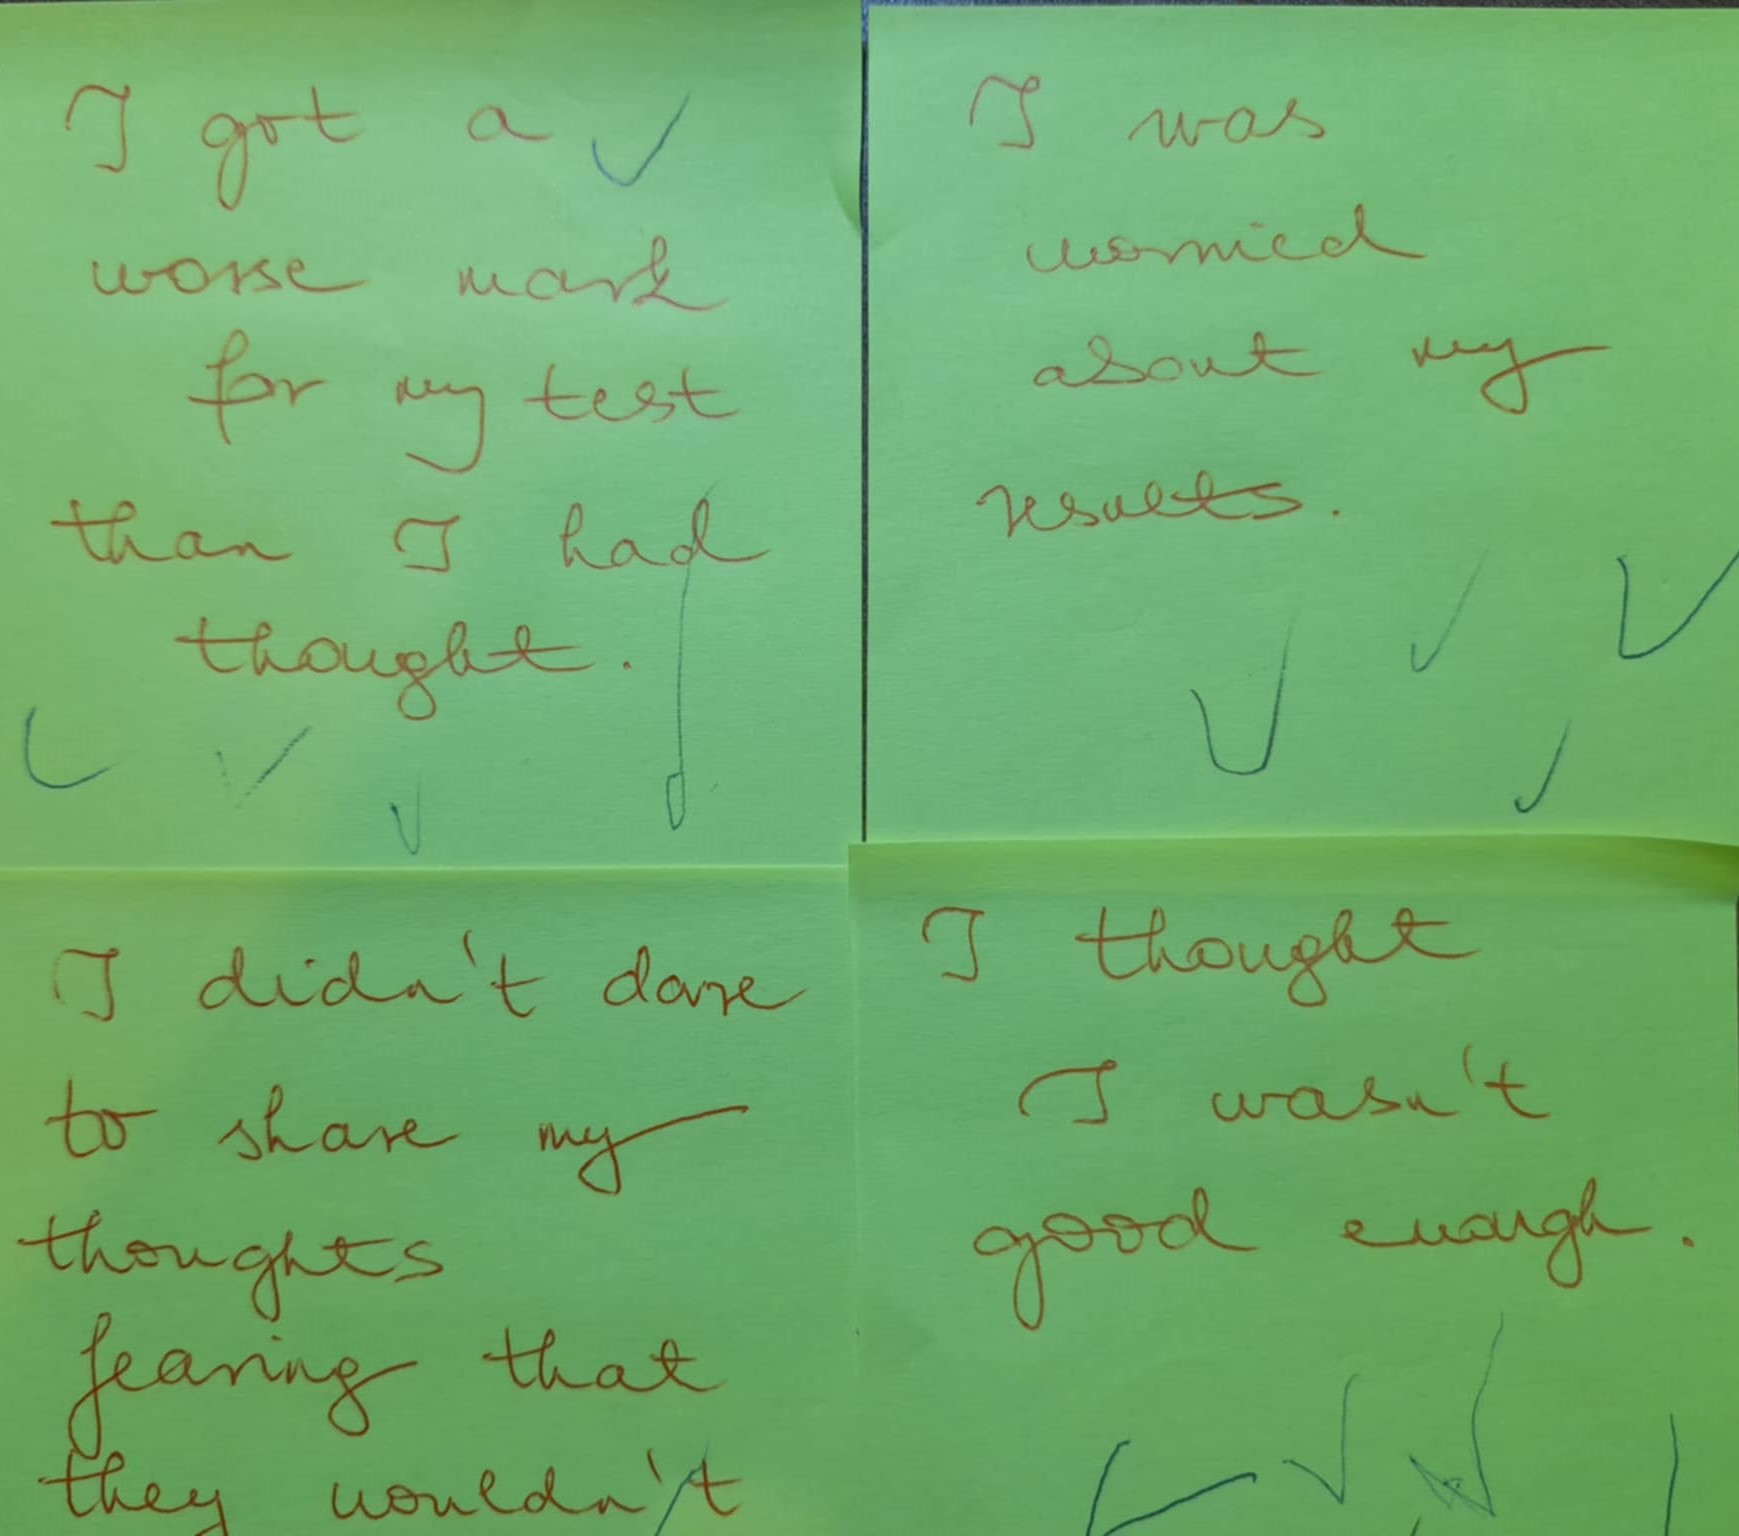 I got a
worse mark
for my test
than I had
thought.
I was
worried
about my
results.
I didn't dare
to share my
thoughts
fearing that
they wouldn't
I thought
I wasn't
good enough.